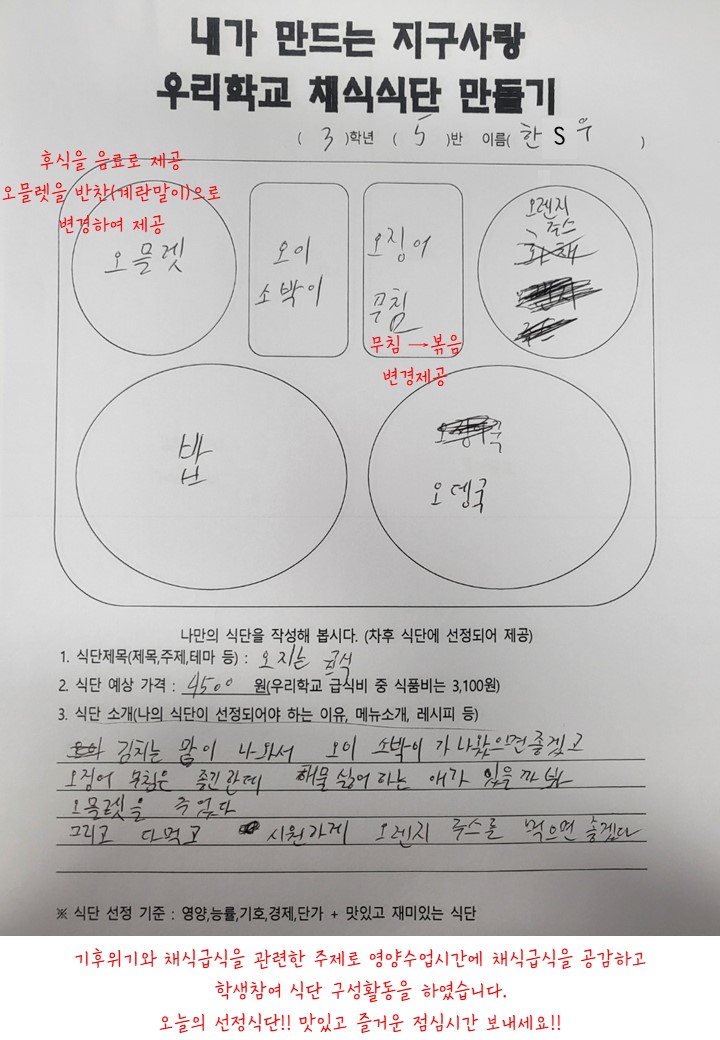 내가 만드는 지구사랑
우리학교 채식식단 만들기
( 3 )학년 ( 5 )반 이름( 한 S 우 )
후식을 음료로 제공
오믈렛을 반찬(계란말이)으로
변경하여 제공
오믈렛
오이
소박이
오징어
무침
무침 → 볶음
변경제공
오렌지
쥬스
화채
밥
오뎅국
나만의 식단을 작성해 봅시다. (차후 식단에 선정되어 제공)
1. 식단제목(제목,주제,테마 등) : 오지는 급식
2. 식단 예상 가격 : 4500 원(우리학교 급식비 중 식품비는 3,100원)
3. 식단 소개(나의 식단이 선정되어야 하는 이유, 메뉴소개, 레시피 등)
김치는 많이 나와서 오이 소박이가 나왔으면 좋겠고
오징어 무침은 좋긴 한데 해물 싫어 하는 애가 있을까 봐
오믈렛을 주었다
그리고 다먹고 시원하게 오렌지 쥬스를 먹으면 좋겠다
※ 식단 선정 기준 : 영양,능률,기호,경제,단가 + 맛있고 재미있는 식단
기후위기와 채식급식을 관련한 주제로 영양수업시간에 채식급식을 공감하고
학생참여 식단 구성활동을 하였습니다.
오늘의 선정식단!! 맛있고 즐거운 점심시간 보내세요!!